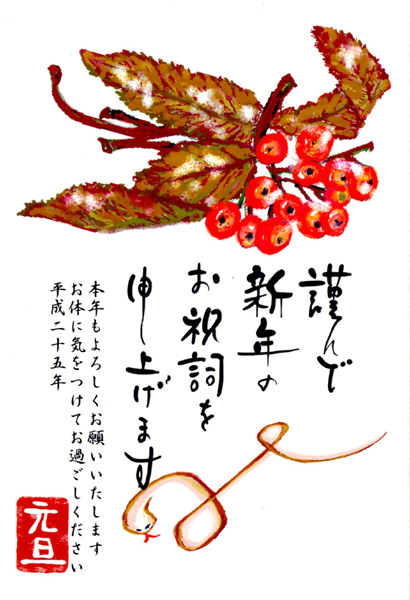 謹んで
新年の
お祝詞を
申し上げます
本年もよろしくお願いいたします
お体に気をつけてお過ごしください
平成二十五年
元旦